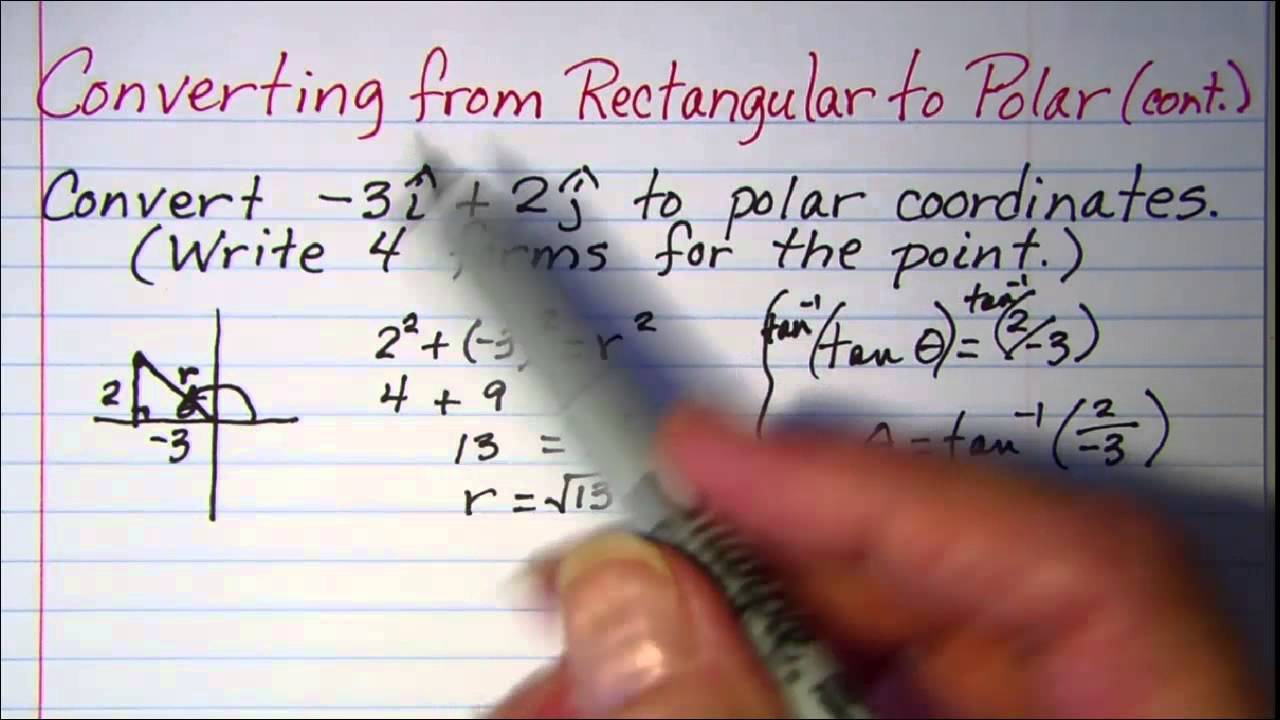 Converting from Rectangular to Polar (cont.)
Convert -3î + 2ĵ to polar coordinates.
(Write 4 forms for the point.)
2
r
-3
2² + (-3)² = r²
4 + 9
13 =
r = √13
tan⁻¹(tan θ) = tan⁻¹(2/-3)
θ = tan⁻¹(2/-3)